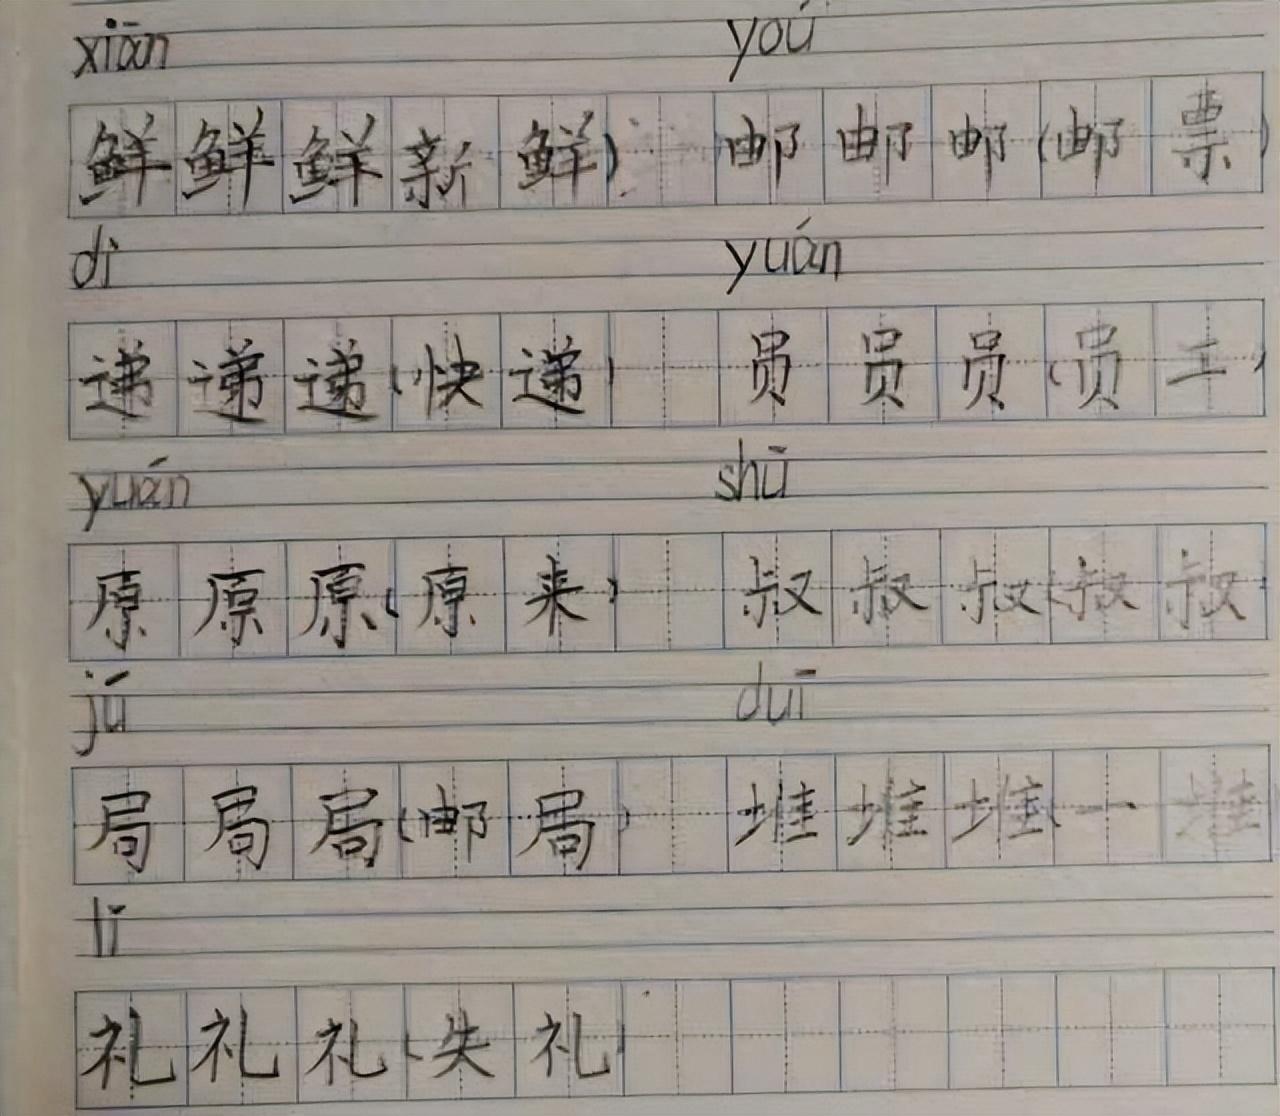 xiān yóu
鲜鲜鲜新鲜) 邮邮邮(邮票)
dì yuán
递递递(快递) 员员员(员工)
yuán shū
原原原(原来) 叔叔叔(叔叔
jú duī
局局局(邮局) 堆堆堆(一堆
lǐ
礼礼礼(失礼)